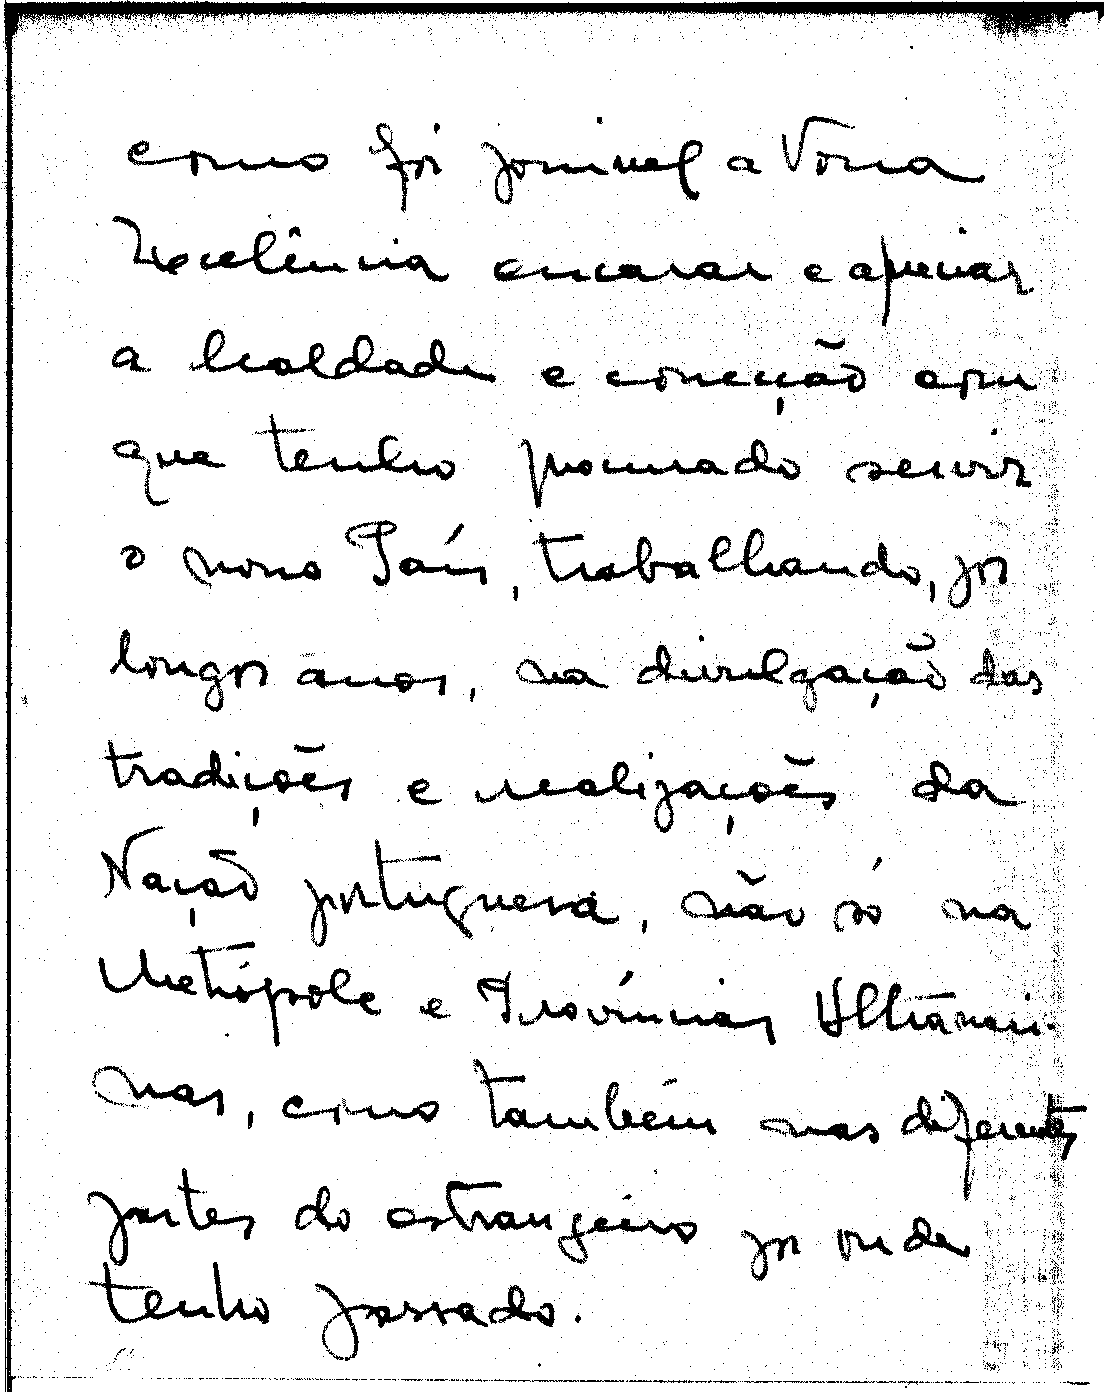 como foi possivel a Vossa
Excelência encarar e apreciar
a lealdade e correcção com
que tenho procurado servir
o nosso País, trabalhando, por
longos anos, na divulgação das
tradições e realizações da
Nação portuguesa, não só na
Metrópole e Províncias Ultramari-
nas, como também nas diferentes
partes do estrangeiro por onde
tenho passado.